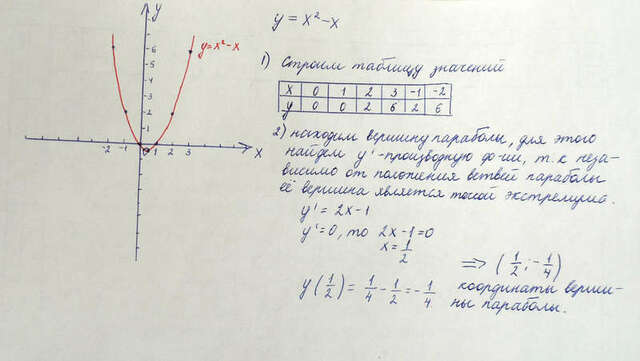 y
y=x²-x
6
5
4
3
2
1
-2 -1 1 2 3 x
y = x² - x
1) Строим таблицу значений
x 0 1 2 3 -1 -2
y 0 0 2 6 2 6
2) находим вершину параболы, для этого
найдем y'-производную ф-ии, т.к неза-
висимо от положения ветвей параболы
её вершина является точкой экстремума.
y' = 2x-1
y'=0, то 2x-1=0
x = 1/2
=> (1/2 ; -1/4)
y(1/2) = 1/4 - 1/2 = -1/4 координаты верши-
ны параболы.